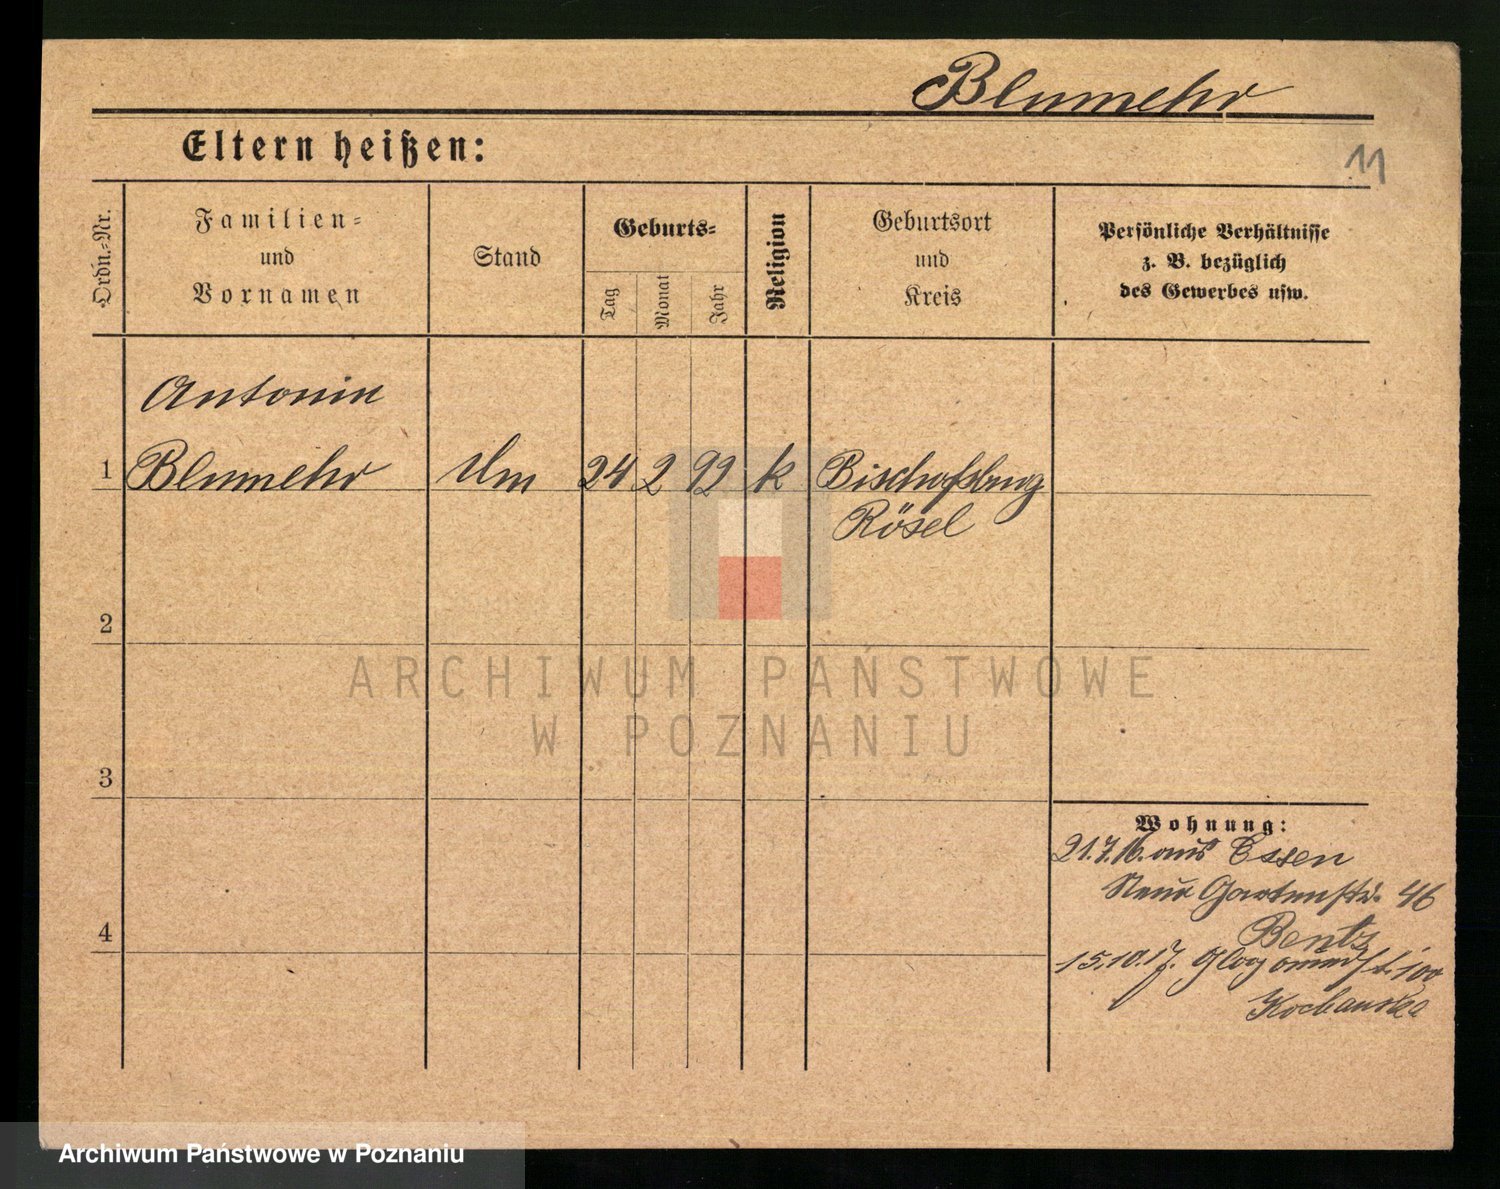 Blumehr
Eltern heißen:
11
Ordn.-Nr.
Familien-
und
Vornamen
Stand
Geburts-
Tag
Monat
Jahr
Religion
Geburtsort
und
Kreis
Persönliche Verhältnisse
z. B. bezüglich
des Gewerbes usw.
Antonin
1 Blumehr 24 2 92 k Bischofsburg
Rösel
2
3
4
Wohnung:
21.7.16. aus Essen
Neue Gartenstr. 46
Bentz
15.10.17.
Kochanska
ARCHIWUM PAŃSTWOWE
W POZNANIU
Archiwum Państwowe w Poznaniu